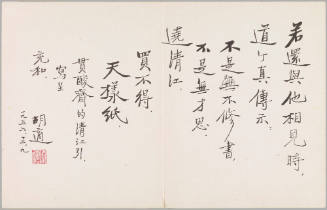 若還與他相見時
道个真傳示
不是無不修書
不是無才思
遶清江
買不得
天樣紙
貫酸齋的清江引
寫呈
充和
胡適
一九五六、五、九